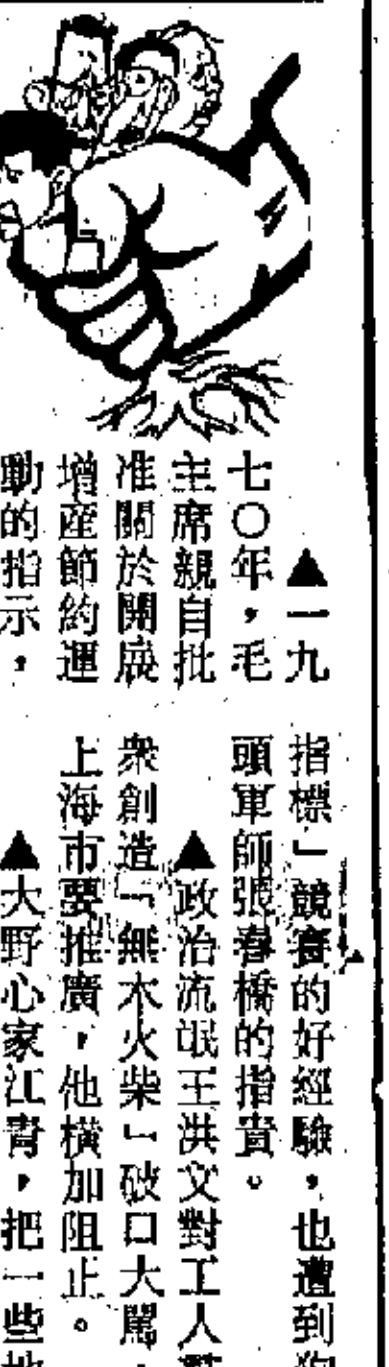 ▲一九
七〇年，毛
主席親自批
准關於開展
增産節約運
動的指示，
指標」競賽的好經驗，也遭到狗
頭軍師張春橋的指責。
▲政治流氓王洪文對工人羣
衆創造「無木火柴」破口大罵，
上海市要推廣，他橫加阻止。
▲大野心家江青，把一些地